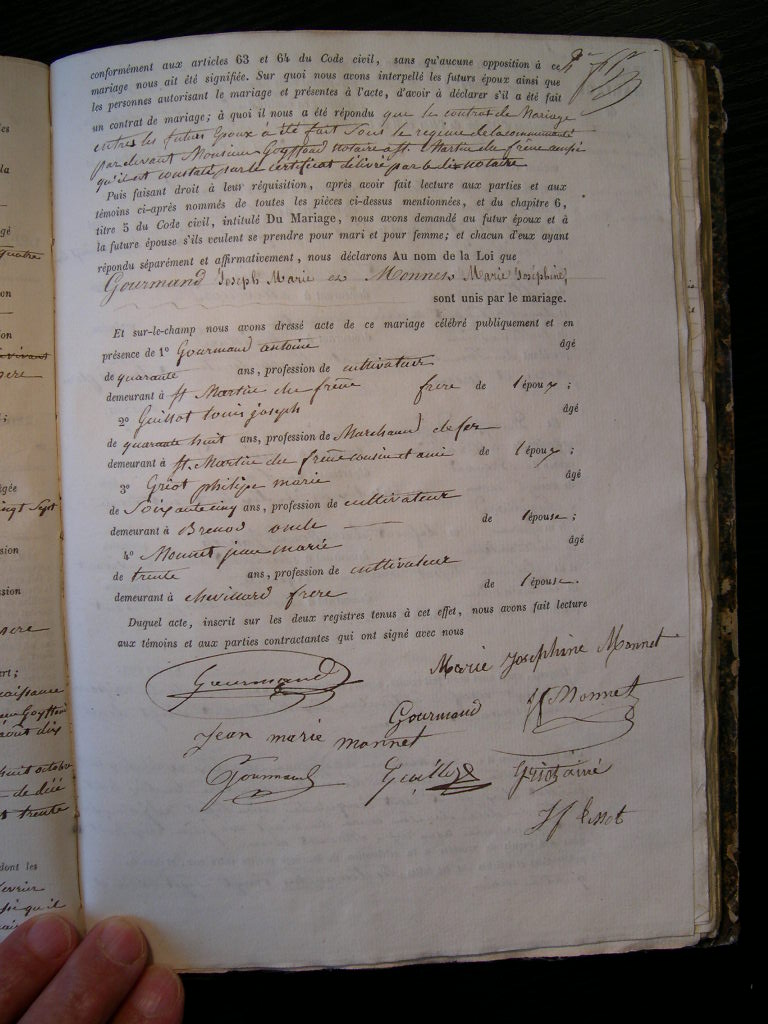 conformément aux articles 63 et 64 du Code civil, sans qu'aucune opposition à ce
mariage nous ait été signifiée. Sur quoi nous avons interpellé les futurs époux ainsi que
les personnes autorisant le mariage et présentes à l'acte, d'avoir à déclarer s'il a été fait
un contrat de mariage; à quoi il nous a été répondu que le contrat de Mariage
entres les futurs Epoux à été fait sous le regime de la communauté
par devant Monsieur Goyffond notaire a St. Martin du frêne ainsi
qu'il est constaté par le certificat délivré par le dit notaire
Puis faisant droit à leur réquisition, après avoir fait lecture aux parties et aux
témoins ci-après nommés de toutes les pièces ci-dessus mentionnées, et du chapitre 6,
titre 5 du Code civil, intitulé Du Mariage, nous avons demandé au futur époux et à
la future épouse s'ils veulent se prendre pour mari et pour femme; et chacun d'eux ayant
répondu séparément et affirmativement, nous déclarons Au nom de la Loi que
Gourmand Joseph Marie et Monnet Marie Joséphine,
sont unis par le mariage.
Et sur-le-champ nous avons dressé acte de ce mariage célébré publiquement et en
présence de 1º Gourmand antoine âgé
de quarante ans, profession de cultivateur
demeurant à St Martin du frêne frere de l'époux ;
2º Guillot louis joseph âgé
de quarante huit ans, profession de Marchand de fer
demeurant à St. Martin du frêne cousin et ami de l'époux ;
3º Griot philipe marie âgé
de Soixante cinq ans, profession de cultivateur
demeurant à Brenod oncle de l'épouse ;
4º Monnet jean marie âgé
de trente ans, profession de cultivateur
demeurant à chevillard frere de l'épouse.
Duquel acte, inscrit sur les deux registres tenus à cet effet, nous avons fait lecture
aux témoins et aux parties contractantes qui ont signé avec nous
Gourmand Marie Josephine Monnet
Gourmand Monnet
Jean marie monnet
Gourmand Guillot Griot ainé